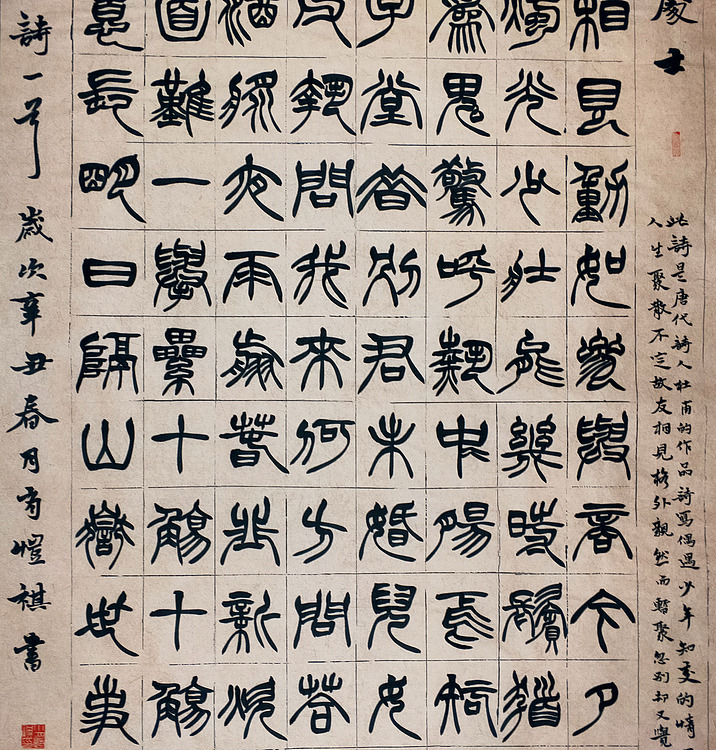 處士
此詩是唐代詩人杜甫的作品詩寫偶遇少年知交的情
人生聚散不定故友相見格外親然而暫聚忽別却又覺
相見動如參與商今夕
燭光少壯能幾時鬢髮
為鬼驚呼熱中腸焉知
子堂昔別君未婚兒女
父執問我來何方問答
酒漿夜雨翦春韭新炊
面難一舉累十觴十觴
意長明日隔山嶽世事
詩一首歲次辛丑春月肖愷祺書